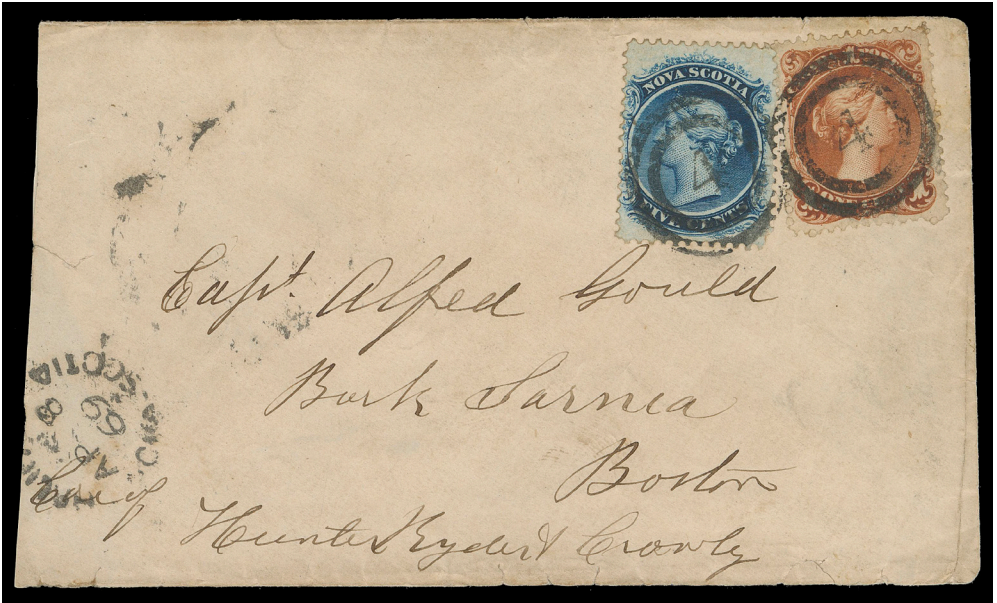 NOVA SCOTIA
FIVE CENTS
Capt. Alfred Gould
Bark Sarnia
Boston
Care of
Hunter Ryder & Crowly
SCOTIA
69